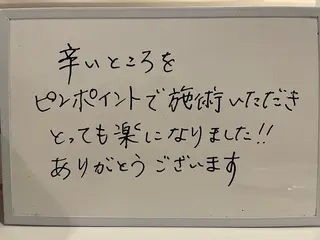 辛いところを
ピンポイントで施術いただき
とっても楽になりました!!
ありがとうございます